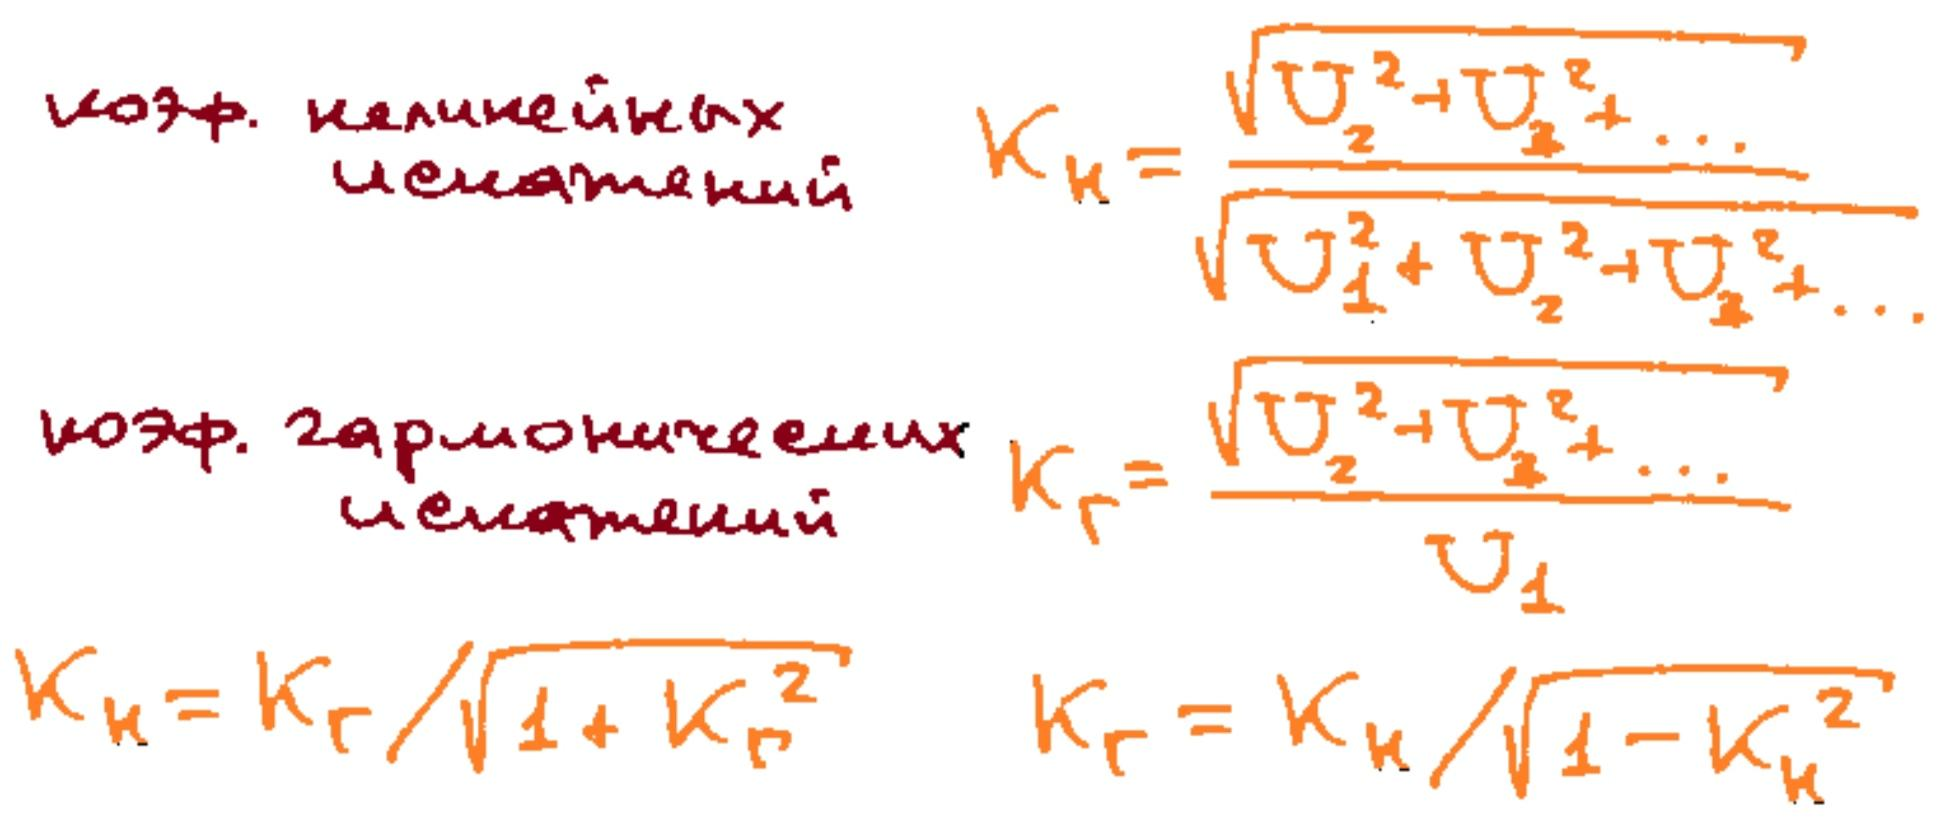 коэф. нелинейных
искажений
Kн = √(U₂² + U₃² + ...) / √(U₁² + U₂² + U₃² + ...)
коэф. гармонических
искажений
Kг = √(U₂² + U₃² + ...) / U₁
Kн = Kг / √(1 + Kг²)
Kг = Kн / √(1 - Kн²)